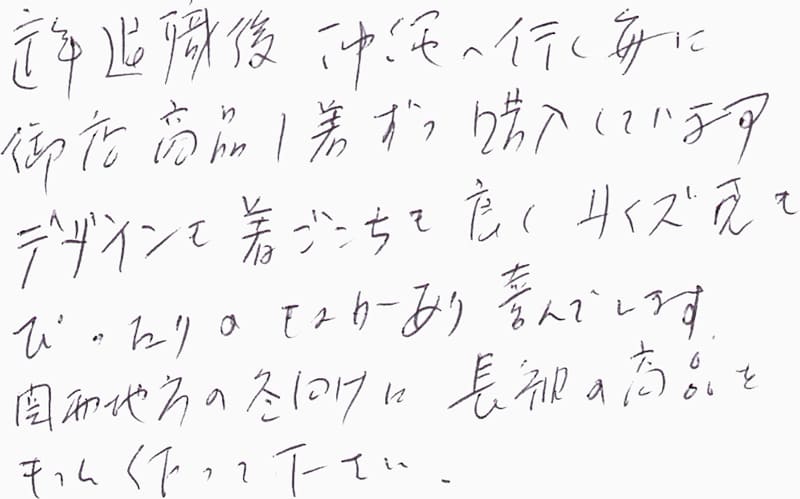 定年退職後 沖縄へ行く毎に
御店商品1着ずつ購入しています
デザインも着ごこちも良くサイズ見も
ぴったりのものがあり喜んでします
関西地方の冬向けに長袖の商品を
もっと作って下さい。